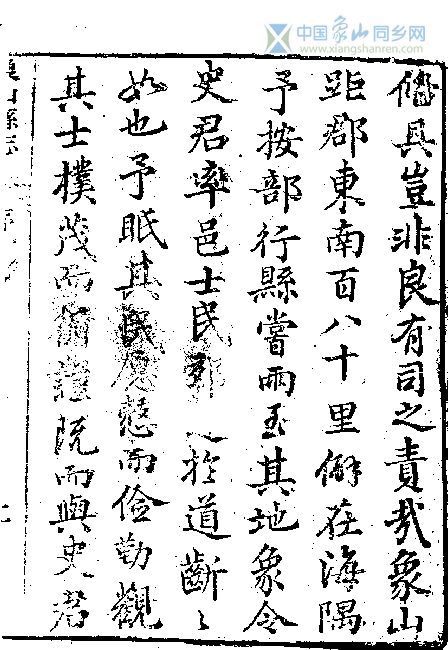 中国象山同乡网
www.xiangshanren.com
俻具豈非良有司之責哉象山
距郡東南百八十里僻在海隅
予按部行縣嘗兩至其地象令
史君率邑士民於道齗〻
如也予眂其民愿慤而儉勤觀
其士樸茂而既而與史君
縣志